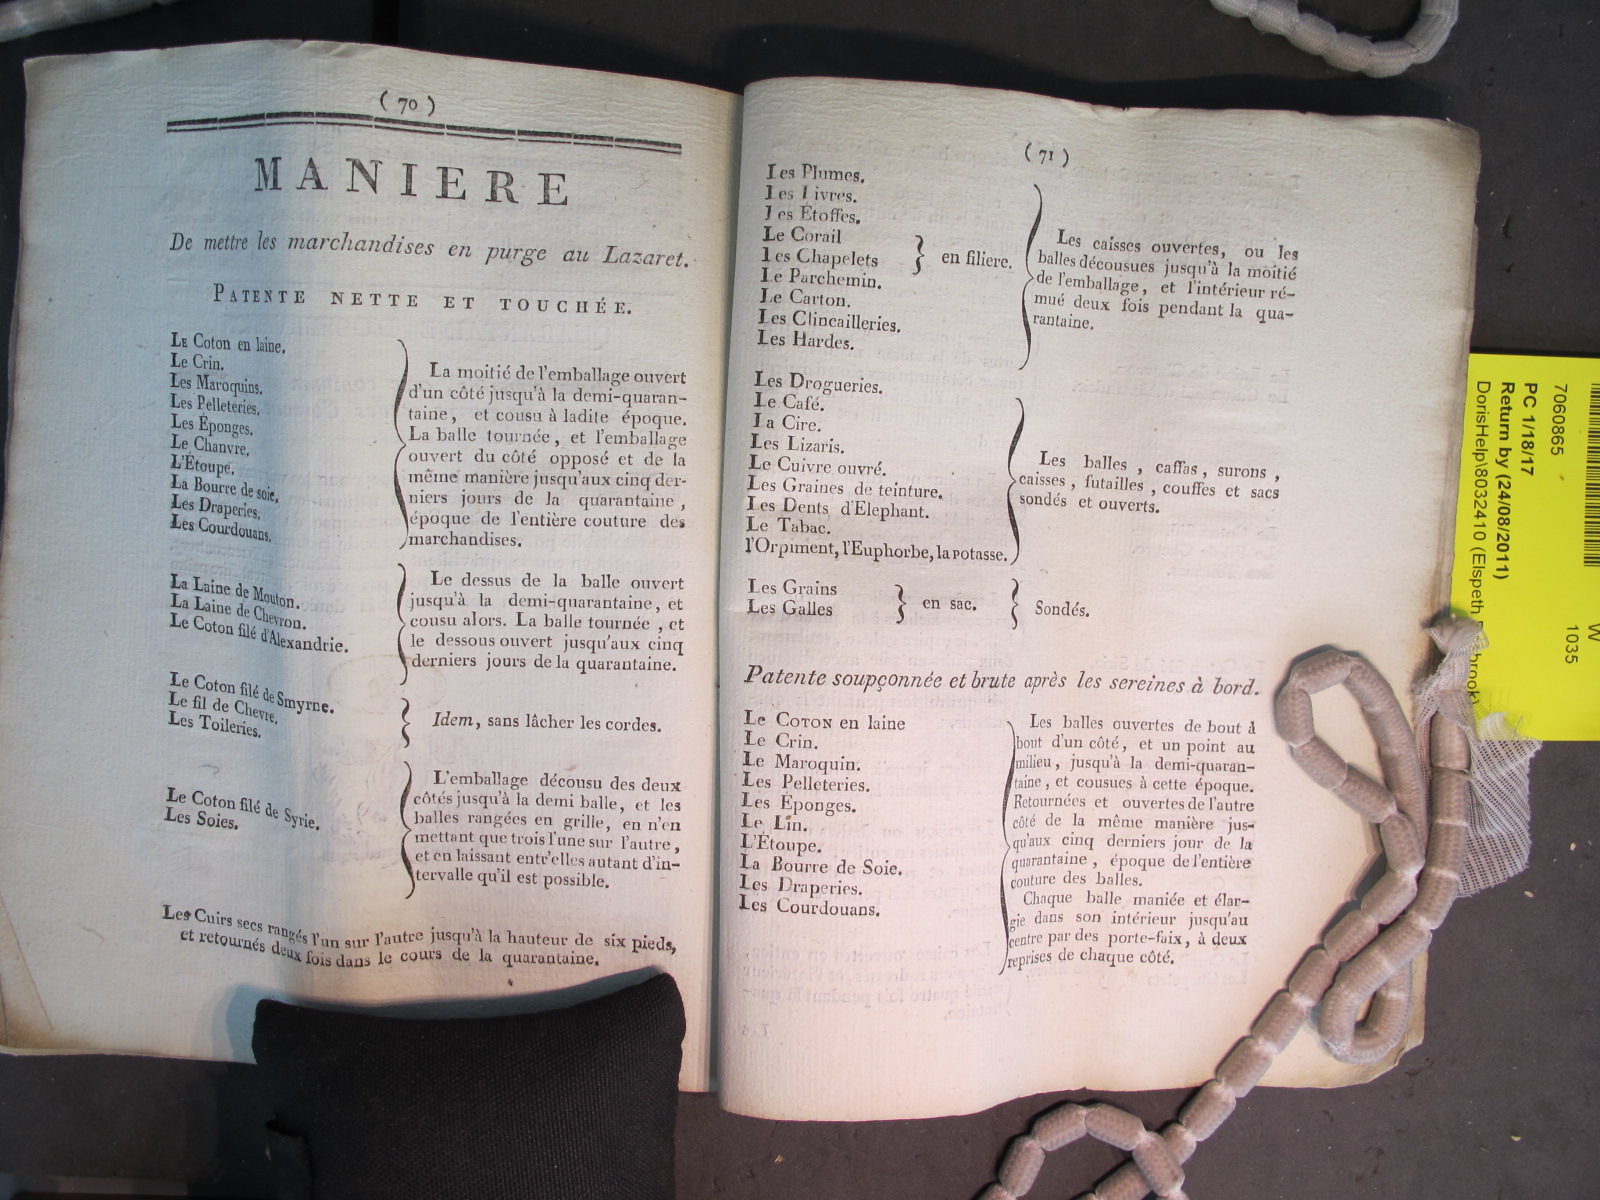 ( 70 )
MANIERE
De mettre les marchandises en purge au Lazaret.
PATENTE NETTE ET TOUCHÉE.
LE Coton en laine.
Le Crin.
Les Maroquins.
Les Pelleteries.
Les Éponges.
Le Chanvre.
L'Étoupe.
La Bourre de soie.
Les Draperies.
Les Courdouans.
La moitié de l'emballage ouvert
d'un côté jusqu'à la demi-quaran-
taine, et cousu à ladite époque.
La balle tournée, et l'emballage
ouvert du côté opposé et de la
même manière jusqu'aux cinq der-
niers jours de la quarantaine,
époque de l'entière couture des
marchandises.
La Laine de Mouton.
La Laine de Chevron.
Le Coton filé d'Alexandrie.
Le dessus de la balle ouvert
jusqu'à la demi-quarantaine, et
cousu alors. La balle tournée, et
le dessous ouvert jusqu'aux cinq
derniers jours de la quarantaine.
Le Coton filé de Smyrne.
Le fil de Chevre.
Les Toileries.
Idem, sans lâcher les cordes.
Le Coton filé de Syrie.
Les Soies.
L'emballage décousu des deux
côtés jusqu'à la demi balle, et les
balles rangées en grille, en n'en
mettant que trois l'une sur l'autre,
et en laissant entr'elles autant d'in-
tervalle qu'il est possible.
Les Cuirs secs rangés l'un sur l'autre jusqu'à la hauteur de six pieds,
et retournés deux fois dans le cours de la quarantaine.
( 71 )
Les Plumes.
Les Livres.
Les Étoffes.
Le Corail
Les Chapelets
en filiere.
Le Parchemin.
Le Carton.
Les Clincailleries.
Les Hardes.
Les caisses ouvertes, ou les
balles décousues jusqu'à la moitié
de l'emballage, et l'intérieur ré-
mué deux fois pendant la qua-
rantaine.
Les Drogueries.
Le Café.
La Cire.
Les Lizaris.
Le Cuivre ouvré.
Les Graines de teinture.
Les Dents d'Elephant.
Le Tabac.
l'Orpiment, l'Euphorbe, la potasse.
Les balles, caffas, surons,
caisses, futailles, couffes et sacs
sondés et ouverts.
Les Grains
Les Galles
en sac.
Sondés.
Patente soupçonnée et brute après les sereines à bord.
Le COTON en laine
Le Crin.
Le Maroquin.
Les Pelleteries.
Les Éponges.
Le Lin.
L'Étoupe.
La Bourre de Soie.
Les Draperies.
Les Courdouans.
Les balles ouvertes de bout à
bout d'un côté, et un point au
milieu, jusqu'à la demi-quaran-
taine, et cousues à cette époque.
Retournées et ouvertes de l'autre
côté de la même manière jus-
qu'aux cinq derniers jour de la
quarantaine, époque de l'entière
couture des balles.
Chaque balle maniée et élar-
gie dans son intérieur jusqu'au
centre par des porte-faix, à deux
reprises de chaque côté.
W
1035
7060865
PC 1/18/17
Return by (24/08/2011)
DorisHelp\8032410 (Elspeth